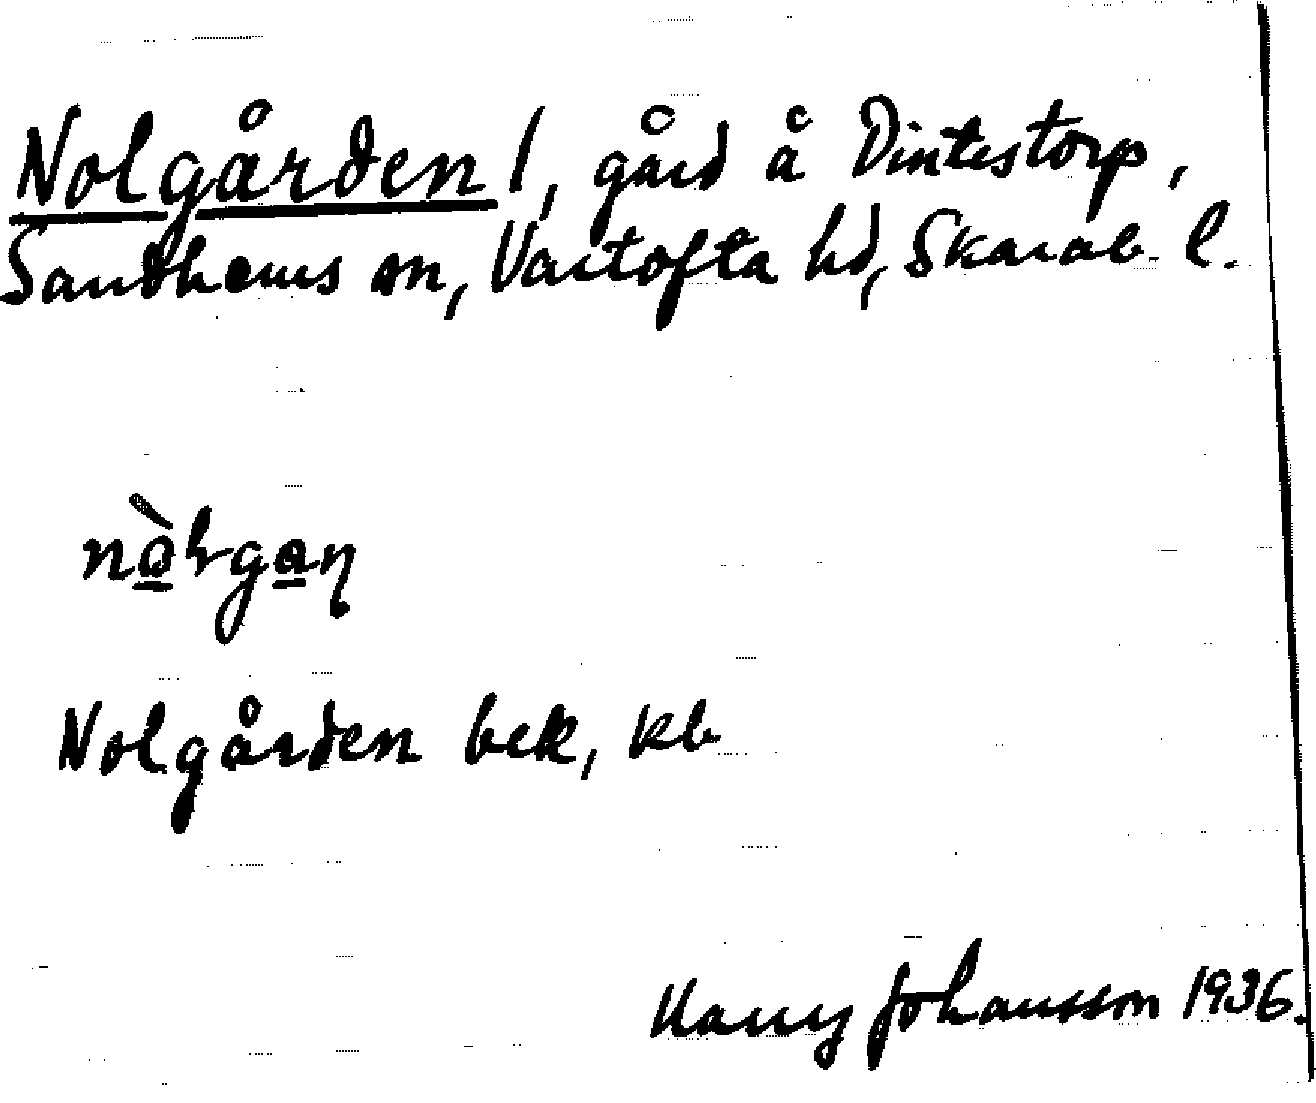 Nolgården 1, gård å Dintestorp,
Sandhems sn, Vartofta hd, Skarab. l.
Nolgården bek, kb
Harry Johansson 1936.